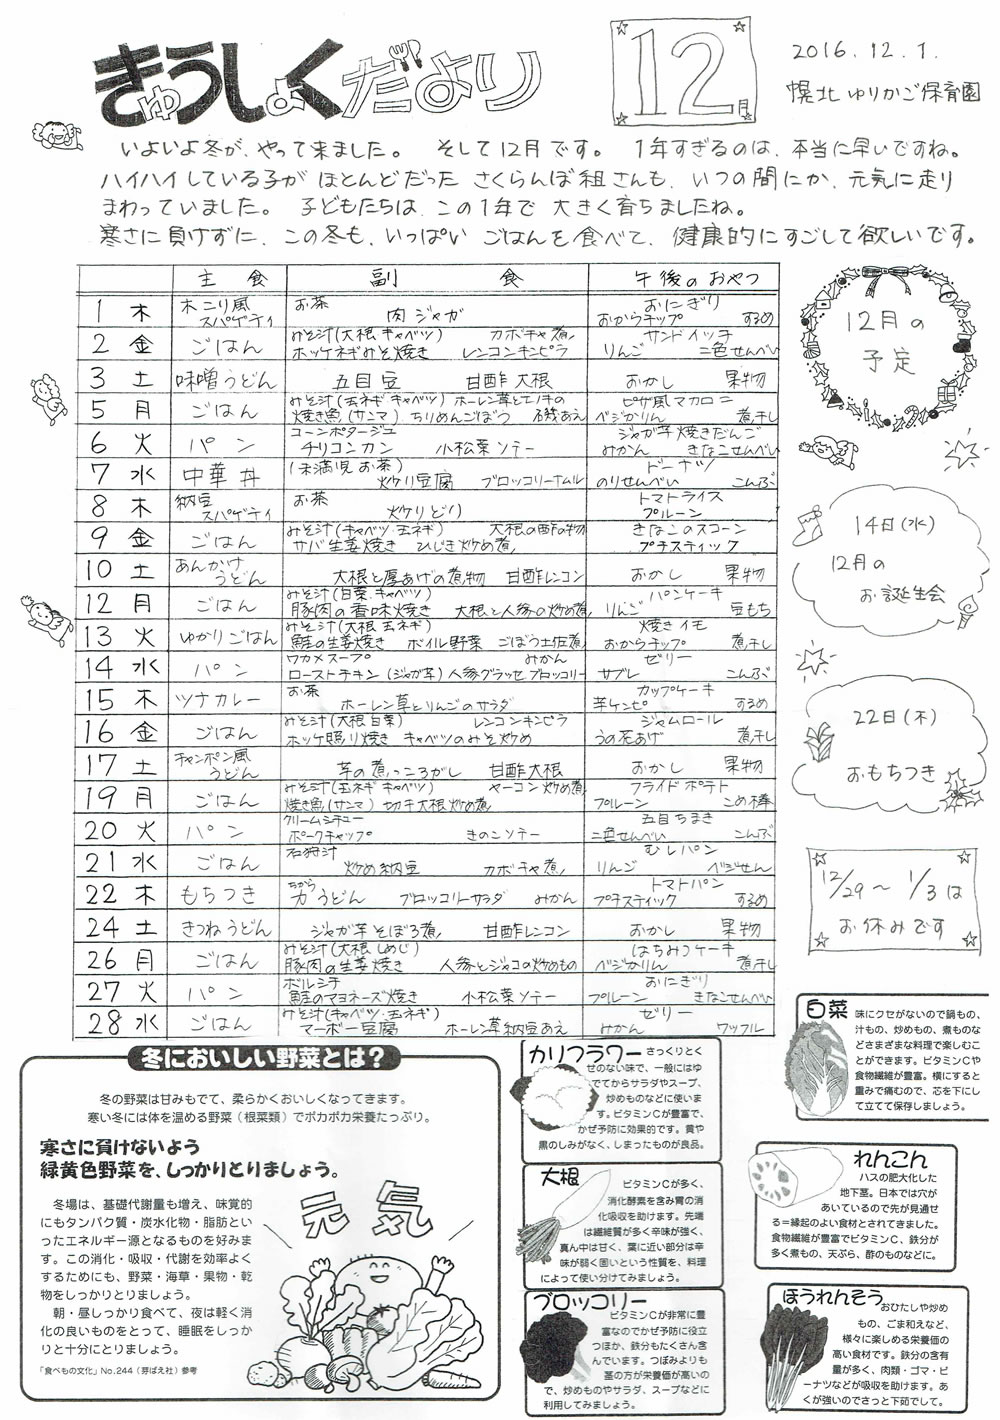 きゅうしょくだより
12月
2016.12.1.
幌北ゆりかご保育園
いよいよ冬が、やって来ました。 そして12月です。 1年すぎるのは、本当に早いですね。
ハイハイしている子が ほとんどだった さくらんぼ組さんも、いつの間にか、元気に走り
まわっていました。 子どもたちは、この1年で 大きく育ちましたね。
寒さに負けずに、この冬も、いっぱい ごはんを食べて、健康的にすごして欲しいです。
主食 副食 午後のおやつ
1 木 木こり風スパゲティ お茶 肉ジャガ おにぎり おからチップ するめ
2 金 ごはん みそ汁(大根 キャベツ) カボチャ煮 ホッケネギみそ焼き レンコンキンピラ サンドイッチ りんご 二色せんべい
3 土 味噌うどん 五目豆 甘酢大根 おかし 果物
5 月 ごはん みそ汁(玉ネギ キャベツ) ホーレン草とエノキの磯あえ 焼き魚(サンマ) ちりめんごぼう ピザ風マカロニ ベジかりん 煮干し
6 火 パン コーンポタージュ チリコンカン 小松菜ソテー ジャガ芋焼きだんご みかん きなこせんべい
7 水 中華丼 (未満児 お茶) 炒り豆腐 ブロッコリーナムル ドーナツ のりせんべい こんぶ
8 木 納豆スパゲティ お茶 炒りどり トマトライス プルーン
9 金 ごはん みそ汁(キャベツ・玉ネギ) 大根の酢の物 サバ生姜焼き ひじき炒め煮 きなこのスコーン プチスティック
10 土 あんかけうどん 大根と厚あげの煮物 甘酢レンコン おかし 果物
12 月 ごはん みそ汁(白菜・キャベツ) 豚肉の香味焼き 大根と人参の炒め煮 パンケーキ りんご 豆もち
13 火 ゆかりごはん みそ汁(大根 玉ネギ) 鮭の生姜焼き ボイル野菜 ごぼう土佐煮 焼きイモ おからチップ 煮干し
14 水 パン ワカメスープ みかん ローストチキン(ジャガ芋)人参グラッセ ブロッコリー ゼリー サブレ こんぶ
15 木 ツナカレー お茶 ホーレン草とりんごのサラダ カップケーキ 芋ケンピ するめ
16 金 ごはん みそ汁(大根 白菜) レンコンキンピラ ホッケ照り焼き キャベツのみそ炒め ジャムロール うの花あげ 煮干し
17 土 チャンポン風うどん 芋の煮っころがし 甘酢大根 おかし 果物
19 月 ごはん みそ汁(玉ネギ キャベツ) ヤーコン炒め煮 焼き魚(サンマ) 切干大根炒め煮 フライドポテト プルーン こめ棒
20 火 パン クリームシチュー ポークチャップ きのこソテー 五目ちまき 二色せんべい こんぶ
21 水 ごはん 石狩汁 炒め納豆 カボチャ煮 むしパン りんご ベジせん
22 木 もちつき 力うどん ちから ブロッコリーサラダ みかん トマトパン プチスティック するめ
24 土 きつねうどん ジャガ芋そぼろ煮 甘酢レンコン おかし 果物
26 月 ごはん みそ汁(大根 しめじ) 豚肉の生姜焼き 人参とジャコの炒めもの はちみつケーキ ベジかりん 煮干し
27 火 パン ボルシチ 鮭のマヨネーズ焼き 小松菜ソテー おにぎり プルーン きなこせんべい
28 水 ごはん みそ汁(キャベツ・玉ネギ) マーボー豆腐 ホーレン草納豆あえ ゼリー みかん ワッフル
12月の
予定
14日(水)
12月の
お誕生会
22日(木)
おもちつき
12/29~1/3は
お休みです
冬においしい野菜とは？
冬の野菜は甘みもでて、柔らかくおいしくなってきます。
寒い冬には体を温める野菜（根菜類）でポカポカ栄養たっぷり。
寒さに負けないよう
緑黄色野菜を、しっかりとりましょう。
冬場は、基礎代謝量も増え、味覚的
にもタンパク質・炭水化物・脂肪とい
ったエネルギー源となるものを好みま
す。この消化・吸収・代謝を効率よく
するためにも、野菜・海草・果物・乾
物をしっかりとりましょう。
朝・昼しっかり食べて、夜は軽く消
化の良いものをとって、睡眠をしっか
りと十分にとりましょう。
「食べもの文化」No.244（芽ばえ社）参考
元気
カリフラワー
さっくりとく
せのない味で、一般にはゆ
でてからサラダやスープ、
炒めものなどに使いま
す。ビタミンCが豊富で、
かぜ予防に効果的です。黄や
黒のしみがなく、しまったものが良品。
大根
ビタミンCが多く、
消化酵素を含み胃の消
化吸収を助けます。先端
は繊維質が多く辛味が強く、
真ん中は甘く、葉に近い部分は辛
味が弱く固いという性質を、料理
によって使い分けてみましょう。
ブロッコリー
ビタミンCが非常に豊
富なのでかぜ予防に役立
つほか、鉄分もたくさん含
んでいます。つぼみよりも
茎の方が栄養価が高いの
で、炒めものやサラダ、スープなどに
利用してみましょう。
白菜
味にクセがないので鍋もの、
汁もの、炒めもの、煮ものな
どさまざまな料理で楽しむこ
とができます。ビタミンCや
食物繊維が豊富。横にすると
重みで痛むので、芯を下にし
て立てて保存しましょう。
れんこん
ハスの肥大化した
地下茎。日本では穴が
あいているので先が見通せ
る＝縁起のよい食材とされてきました。
食物繊維が豊富でビタミンC、鉄分が
多く煮もの、天ぷら、酢のものなどに。
ほうれんそう
おひたしや炒め
もの、ごま和えなど、
様々に楽しめる栄養価の
高い食材です。鉄分の含有
量が多く、肉類・ゴマ・ピ
ーナツなどが吸収を助けます。あ
くが強いのでさっと下茹でして。